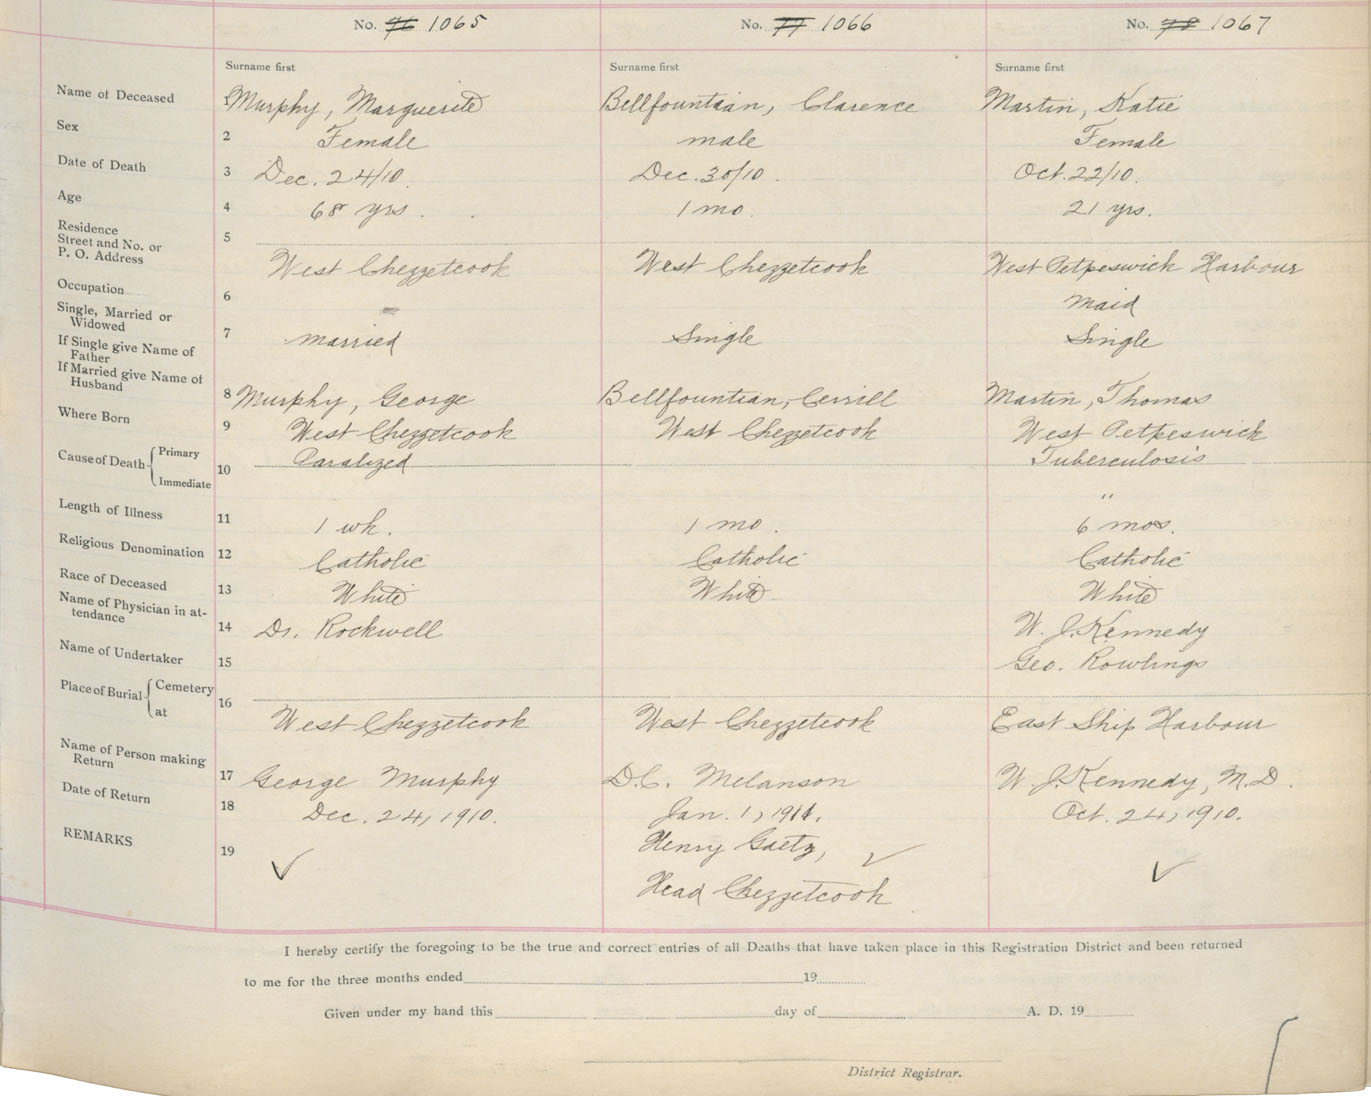 No. 76 1065 No. 77 1066 No. 78 1067
Surname first Surname first Surname first
Name of Deceased Murphy, Marguerite Bellfountain, Clarence Martin, Katie
Sex 2 Female male Female
Date of Death 3 Dec. 24/10. Dec. 30/10. Oct. 22/10.
Age 4 68 yrs. 1 mo. 21 yrs.
Residence
Street and No. or 5
P. O. Address West Chezzetcook West Chezzetcook West Petpeswick Harbour
Occupation 6 Maid
Single, Married or
Widowed 7 married Single Single
If Single give Name of
Father
If Married give Name of
Husband 8 Murphy, George Bellfountian, Cerrill Martin, Thomas
Where Born 9 West Chezzetcook West Chezzetcook West Petpeswick
Cause of Death Primary 10 Paralized Tuberculosis
Immediate "
Length of Illness 11 1 wk. 1 mo. 6 mos.
Religious Denomination 12 Catholic Catholic Catholic
Race of Deceased 13 White White White
Name of Physician in at-
tendance 14 Dr. Rockwell W. J. Kennedy
Name of Undertaker 15 Geo. Rowlings
Place of Burial Cemetery 16
at West Chezzetcook West Chezzetcook East Ship Harbour
Name of Person making
Return 17 George Murphy D.C. Melanson W. J. Kennedy, M.D.
Date of Return 18 Dec. 24, 1910. Jan. 1, 1911. Oct. 24, 1910.
REMARKS 19 ✓ Henry Gaetz, ✓ ✓
Head Chezzetcook
I hereby certify the foregoing to be the true and correct entries of all Deaths that have taken place in this Registration District and been returned
to me for the three months ended 19
Given under my hand this day of A. D. 19
District Registrar.